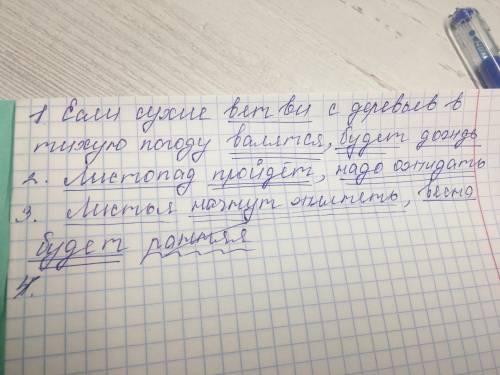 1 Если сухие ветви с деревьев в
тихую погоду валятся, будет дождь
2. Листопад пройдёт, надо ожидать
3. Листья начнут желтеть, весна
будет ранняя
4.